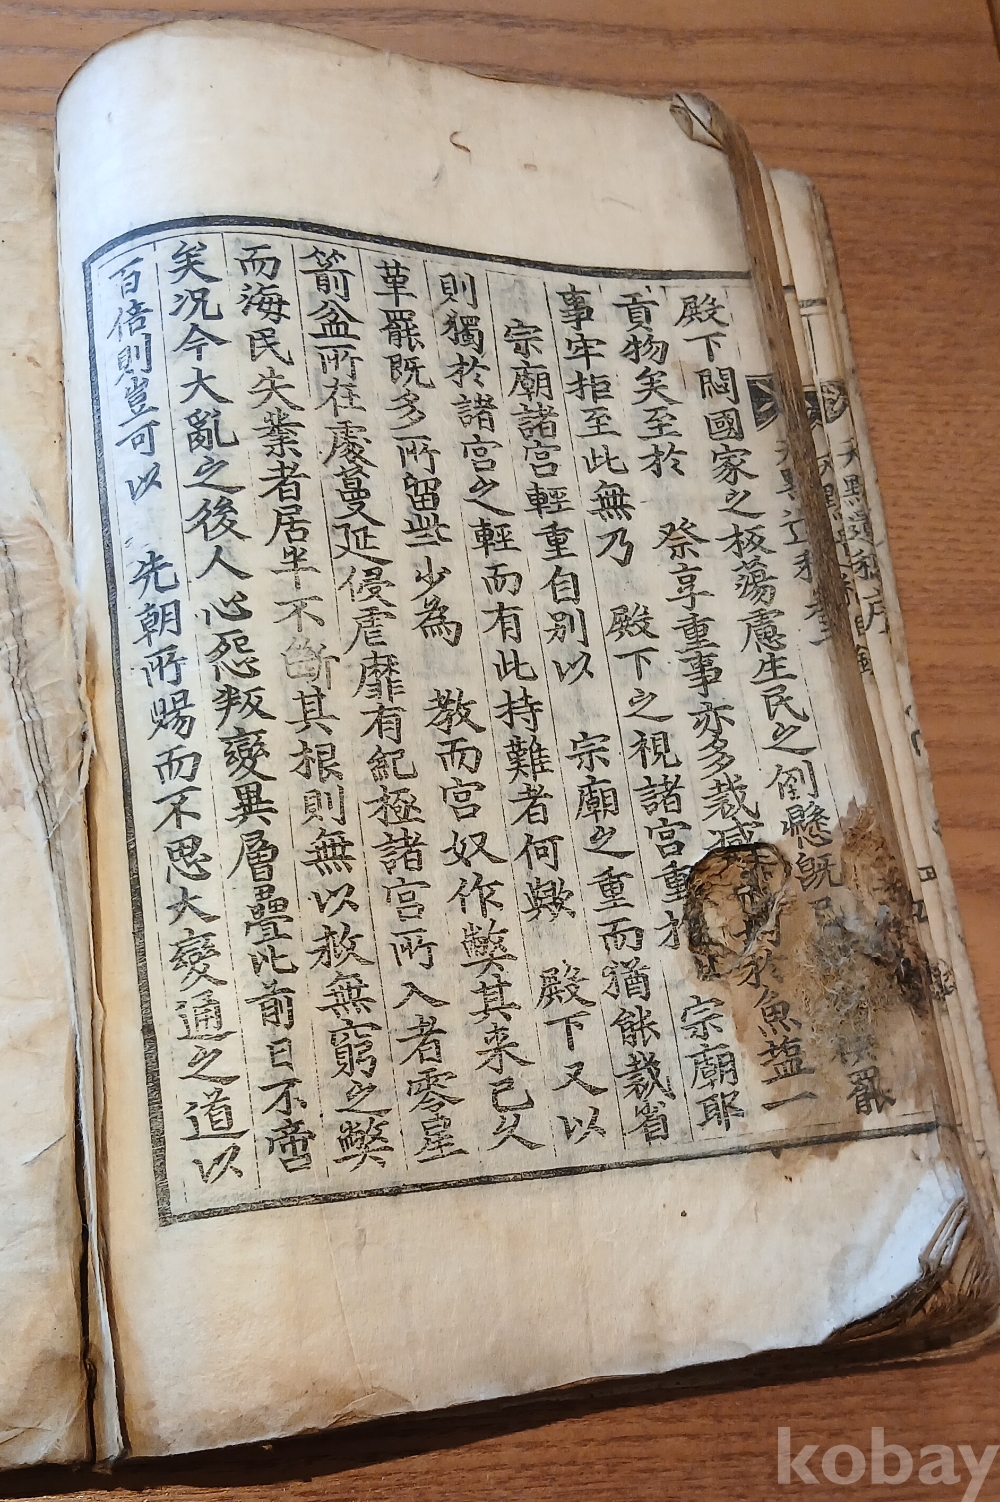 殿下悶國家之板蕩慮生民之倒懸旣 罷
貢物矣至於 祭享重事亦多裁減 於魚鹽一
事牢拒至此無乃 殿下之視諸宮重於 宗廟耶
宗廟諸宮輕重自別以 宗廟之重而猶能裁省
則獨於諸宮之輕而有此持難者何歟 殿下又以
革罷旣多所留些少為 敎而宮奴作弊其来已久
箭盆所在處蔓延侵虐靡有紀極諸宮所入者零星
而海民失業者居半不斷其根則無以救無窮之弊
矣况今大亂之後人心怨叛變異層疊比前日不啻
百倍則豈可以 先朝所賜而不思大變通之道以
天默遺稿序
kobay